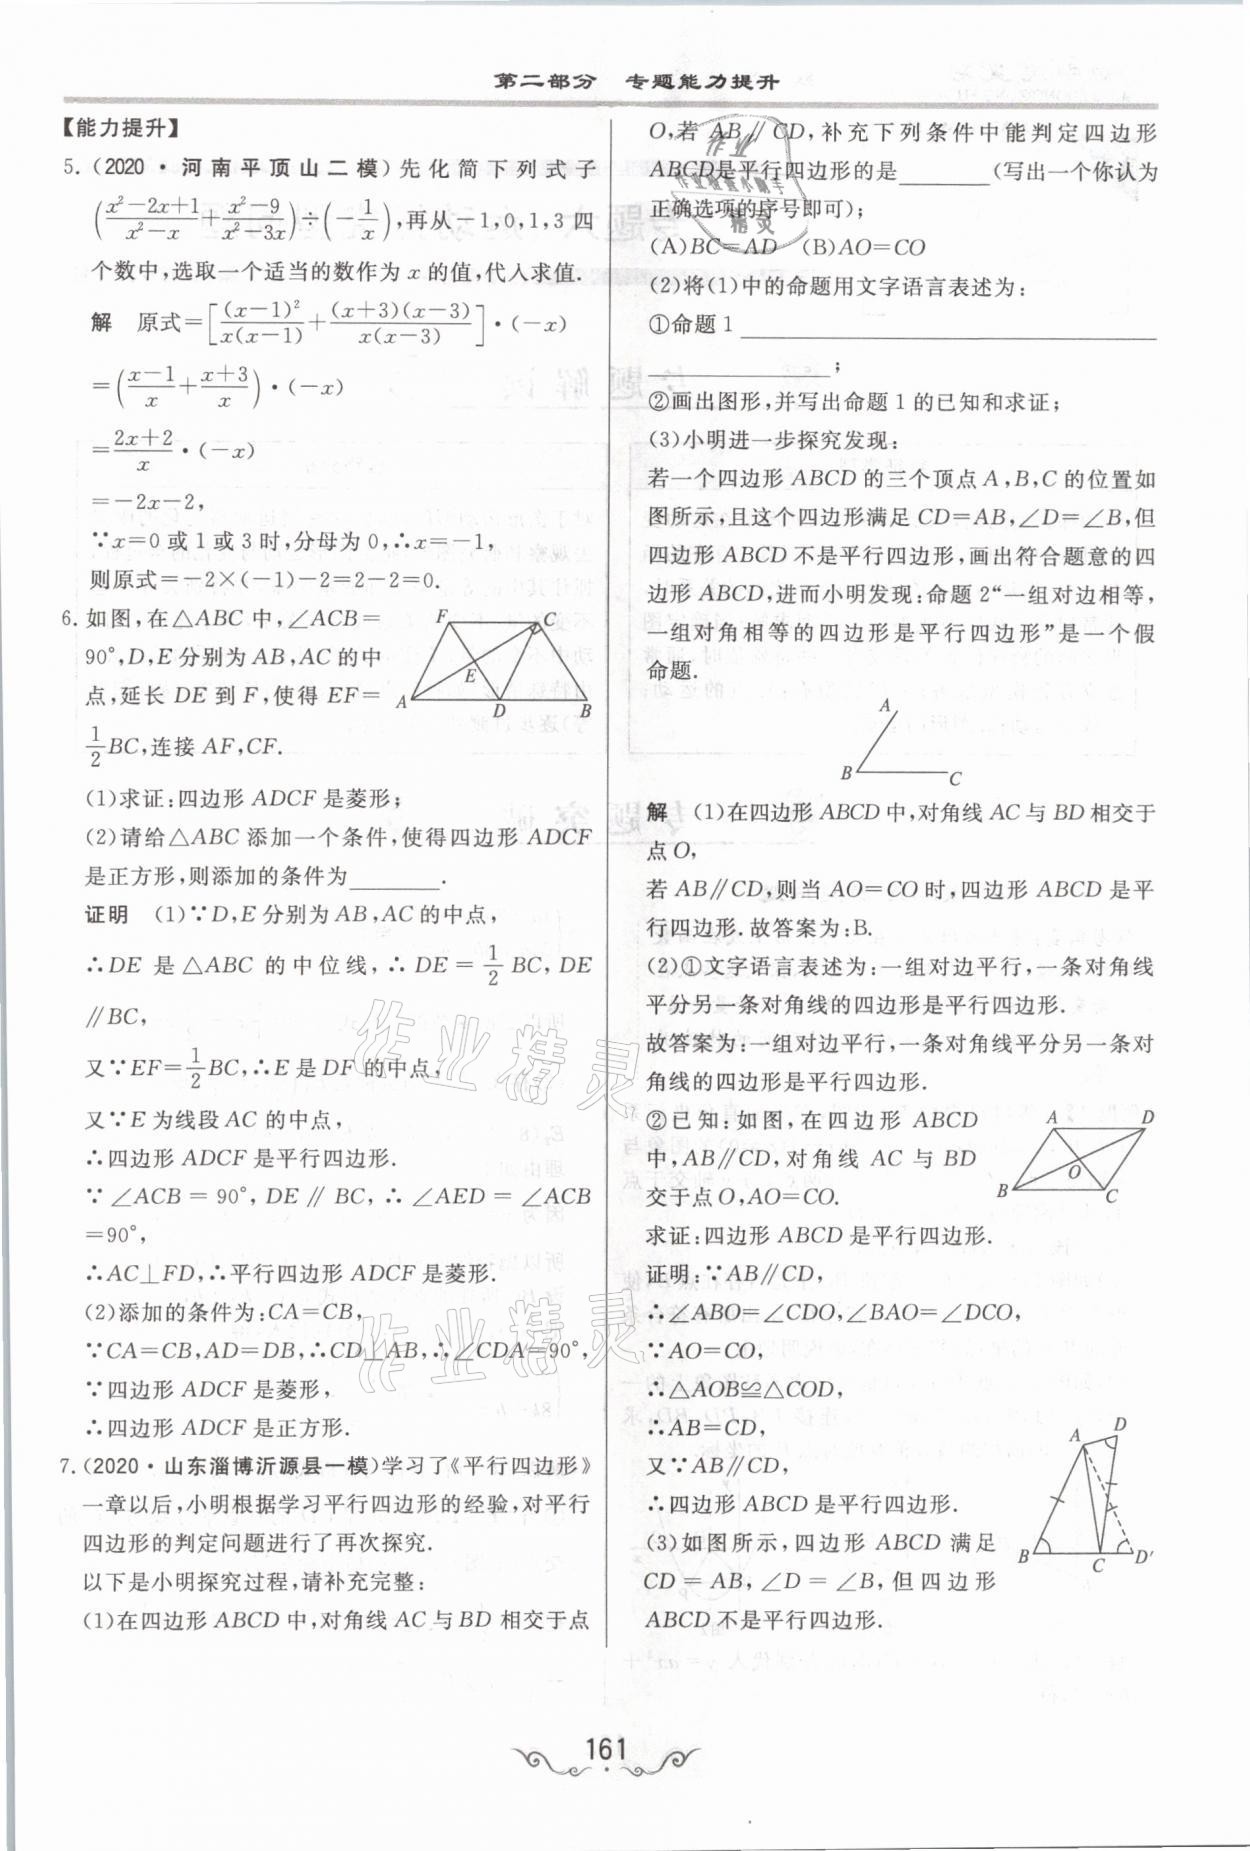 第二部分 专题能力提升
【能力提升】
5.(2020·河南平顶山二模)先化简下列式子
(x²-2x+1/x²-x+x²-9/x²-3x)÷(-1/x),再从-1,0,1,3四
个数中,选取一个适当的数作为x的值,代入求值.
解 原式=[(x-1)²/x(x-1)+(x+3)(x-3)/x(x-3)]·(-x)
=(x-1/x+x+3/x)·(-x)
=2x+2/x·(-x)
=-2x-2,
∵x=0或1或3时,分母为0,∴x=-1,
则原式=-2×(-1)-2=2-2=0.
6.如图,在△ABC中,∠ACB=
90°,D,E分别为AB,AC的中
点,延长DE到F,使得EF=
1/2BC,连接AF,CF.
F C E A D B
(1)求证:四边形ADCF是菱形;
(2)请给△ABC添加一个条件,使得四边形ADCF
是正方形,则添加的条件为________.
证明 (1)∵D,E分别为AB,AC的中点,
∴DE是△ABC的中位线,∴DE=1/2BC,DE
∥BC,
又∵EF=1/2BC,∴E是DF的中点,
又∵E为线段AC的中点,
∴四边形ADCF是平行四边形.
∵∠ACB=90°,DE∥BC,∴∠AED=∠ACB
=90°,
∴AC⊥FD,∴平行四边形ADCF是菱形.
(2)添加的条件为:CA=CB,
∵CA=CB,AD=DB,∴CD⊥AB,∴∠CDA=90°,
∵四边形ADCF是菱形,
∴四边形ADCF是正方形.
7.(2020·山东淄博沂源县一模)学习了《平行四边形》
一章以后,小明根据学习平行四边形的经验,对平行
四边形的判定问题进行了再次探究.
以下是小明探究过程,请补充完整:
(1)在四边形ABCD中,对角线AC与BD相交于点
O,若AB∥CD,补充下列条件中能判定四边形
ABCD是平行四边形的是________(写出一个你认为
正确选项的序号即可);
(A)BC=AD (B)AO=CO
(2)将(1)中的命题用文字语言表述为:
①命题1________________
________________;
②画出图形,并写出命题1的已知和求证;
(3)小明进一步探究发现:
若一个四边形ABCD的三个顶点A,B,C的位置如
图所示,且这个四边形满足CD=AB,∠D=∠B,但
四边形ABCD不是平行四边形,画出符合题意的四
边形ABCD,进而小明发现:命题2“一组对边相等,
一组对角相等的四边形是平行四边形”是一个假
命题.
A B C
解 (1)在四边形ABCD中,对角线AC与BD相交于
点O,
若AB∥CD,则当AO=CO时,四边形ABCD是平
行四边形.故答案为:B.
(2)①文字语言表述为:一组对边平行,一条对角线
平分另一条对角线的四边形是平行四边形.
故答案为:一组对边平行,一条对角线平分另一条对
角线的四边形是平行四边形.
②已知:如图,在四边形ABCD
中,AB∥CD,对角线AC与BD
交于点O,AO=CO.
A D O B C
求证:四边形ABCD是平行四边形.
证明:∵AB∥CD,
∴∠ABO=∠CDO,∠BAO=∠DCO,
∵AO=CO,
∴△AOB≌△COD,
∴AB=CD,
又∵AB∥CD,
∴四边形ABCD是平行四边形.
(3)如图所示,四边形ABCD满足
CD=AB,∠D=∠B,但四边形
ABCD不是平行四边形.
A D B C D′
161
作业精灵
作业精灵
作业
作业检查小助手
精灵